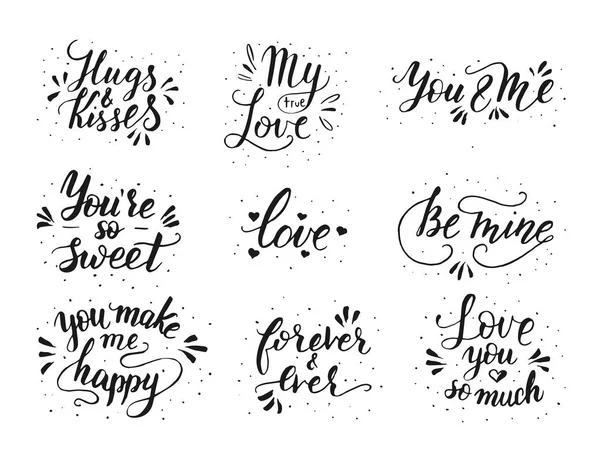 Hugs
&
Kisses
My
true
Love
You & Me
You're
so
sweet
love
Be mine
you make
me
happy
forever
&
ever
Love
you
so much